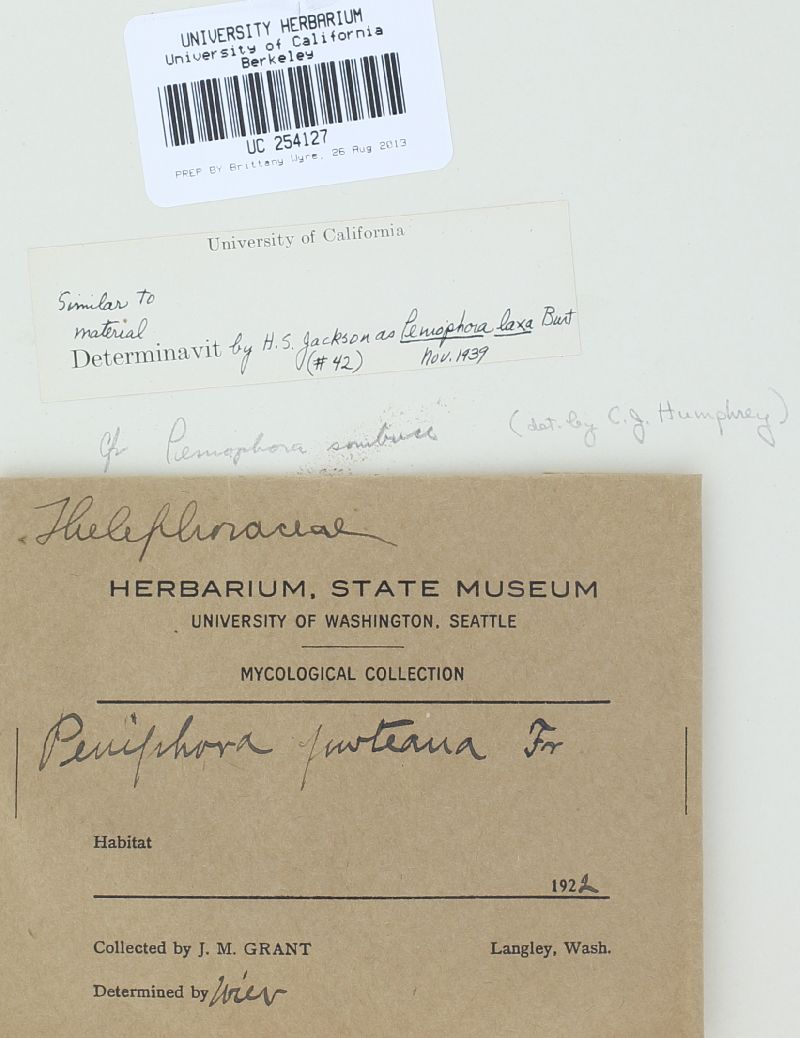 UNIVERSITY HERBARIUM
University of California
Berkeley
UC 254127
PREP BY Brittany Wyre, 26 Aug 2013
University of California
Similar to
material
Determinavit by H. S. Jackson as Peniophora laxa Burt
(#42) Nov. 1939
Cfr Peniophora (det. by C. J. Humphrey)
Thelephoraceae
HERBARIUM, STATE MUSEUM
UNIVERSITY OF WASHINGTON, SEATTLE
MYCOLOGICAL COLLECTION
Peniphora puteana Fr
Habitat
1922
Collected by J. M. GRANT Langley, Wash.
Determined by Wier